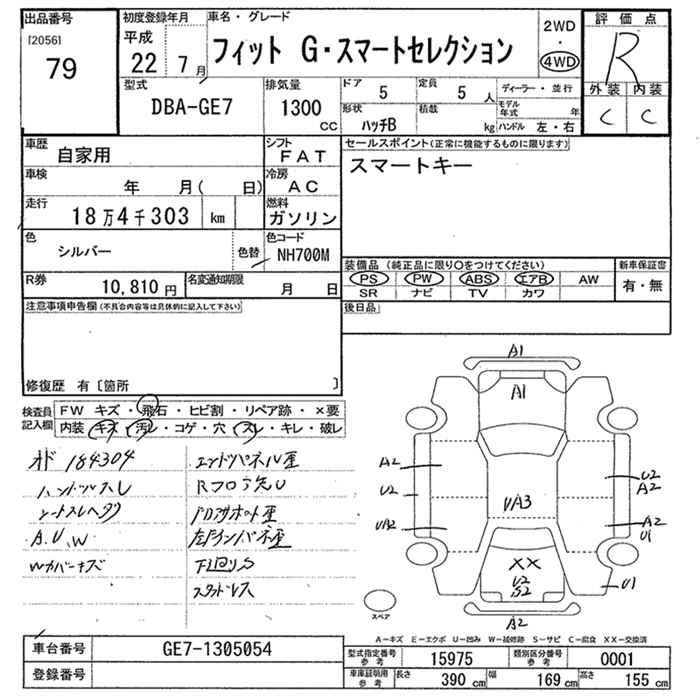 出品番号
[2056]
79
初度登録年月
平成
22 7月
車名・グレード
フィット G・スマートセレクション
2WD
・
4WD
評価点
R
外装 内装
C C
型式
DBA-GE7
排気量
1300 CC
ドア
5
定員
5 人
形状
ハッチB
積載
kg
ディーラー・並行
モデル年式 年
ハンドル 左・右
車歴
自家用
シフト
FAT
車検
年 月( 日)
冷房
AC
走行
18万4千303 km
燃料
ガソリン
色
シルバー
色替
色コード
NH700M
R券
10,810円
名変通知期限
月 日
セールスポイント(正常に機能するものに限ります)
スマートキー
装備品(純正品に限り○をつけてください)
新車保証書
PS PW ABS エアB AW
SR ナビ TV カワ
有・無
後日品
注意事項申告欄(不具合内容等は具体的に記入して下さい)
修復歴 有〔箇所 〕
検査員記入欄
FW キズ・飛石・ヒビ割・リペア跡・×要
内装 キズ・汚レ・コゲ・穴・スレ・キレ・破レ
184304
ハンドルスレ
A.U.W
Wカバーキズ
エンドパネル歪
下回りS
スタッドレス
A1
A1
A2
U2
UA2
UA3
U2
A2
A2
U1
XX
U2
S2
U1
A2
スペア
A－キズ E－エクボ U－凹み W－補修跡 S－サビ C－腐食 XX－交換済
車台番号
GE7-1305054
登録番号
型式指定番号 参考
15975
類別区分番号 参考
0001
車庫証明用 参考
長さ 390 cm
幅 169 cm
高さ 155 cm